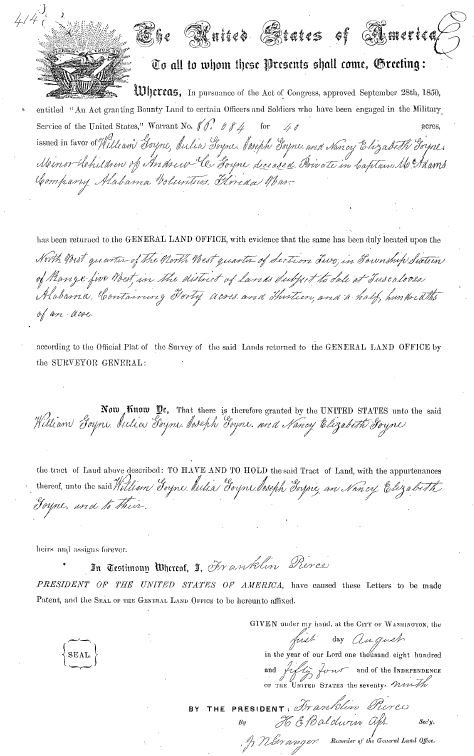 414
The United States of America
To all to whom these Presents shall come, Greeting:
Whereas, In pursuance of the Act of Congress, approved September 28th, 1850,
entitled "An Act granting Bounty Land to certain Officers and Soldiers who have been engaged in the Military
Service of the United States," Warrant No. 88.084 for 40 acres,
issued in favor of William Goyne, Julia Goyne, Joseph Goyne, and Nancy Elizabeth Goyne
Minor Children of Andrew C Goyne deceased Private in Captain McAdams
Company Alabama Volunteers Florida War
has been returned to the GENERAL LAND OFFICE, with evidence that the same has been duly located upon the
North West quarter of the North West quarter of Section Two, in Township Sixteen
of Range five West, in the district of lands subject to Sale at Tuscaloosa
Alabama. Containing Forty acres and Thirteen, and a half, hundredths
of an acre
according to the Official Plat of the Survey of the said Lands returned to the GENERAL LAND OFFICE by
the SURVEYOR GENERAL:
Now Know Ye, That there is therefore granted by the UNITED STATES unto the said
William Goyne, Julia Goyne, Joseph Goyne, and Nancy Elizabeth Goyne
the tract of Land above described: TO HAVE AND TO HOLD the said Tract of Land, with the appurtenances
thereof, unto the said William Goyne, Julia Goyne, Joseph Goyne, an Nancy Elizabeth
Goyne, and to their
heirs and assigns forever.
In Testimony Whereof, I, Franklin Pierce
PRESIDENT OF THE UNITED STATES OF AMERICA, have caused these Letters to be made
Patent, and the SEAL OF THE GENERAL LAND OFFICE to be hereunto affixed.
GIVEN under my hand, at the CITY OF WASHINGTON, the
first day August
in the year of our Lord one thousand eight hundred
and fifty four and of the INDEPENDENCE
OF THE UNITED STATES the seventy-ninth
SEAL
BY THE PRESIDENT: Franklin Pierce
By H. E. Baldwin Ast. Sec'y.
J. N. Granger Recorder of the General Land Office.